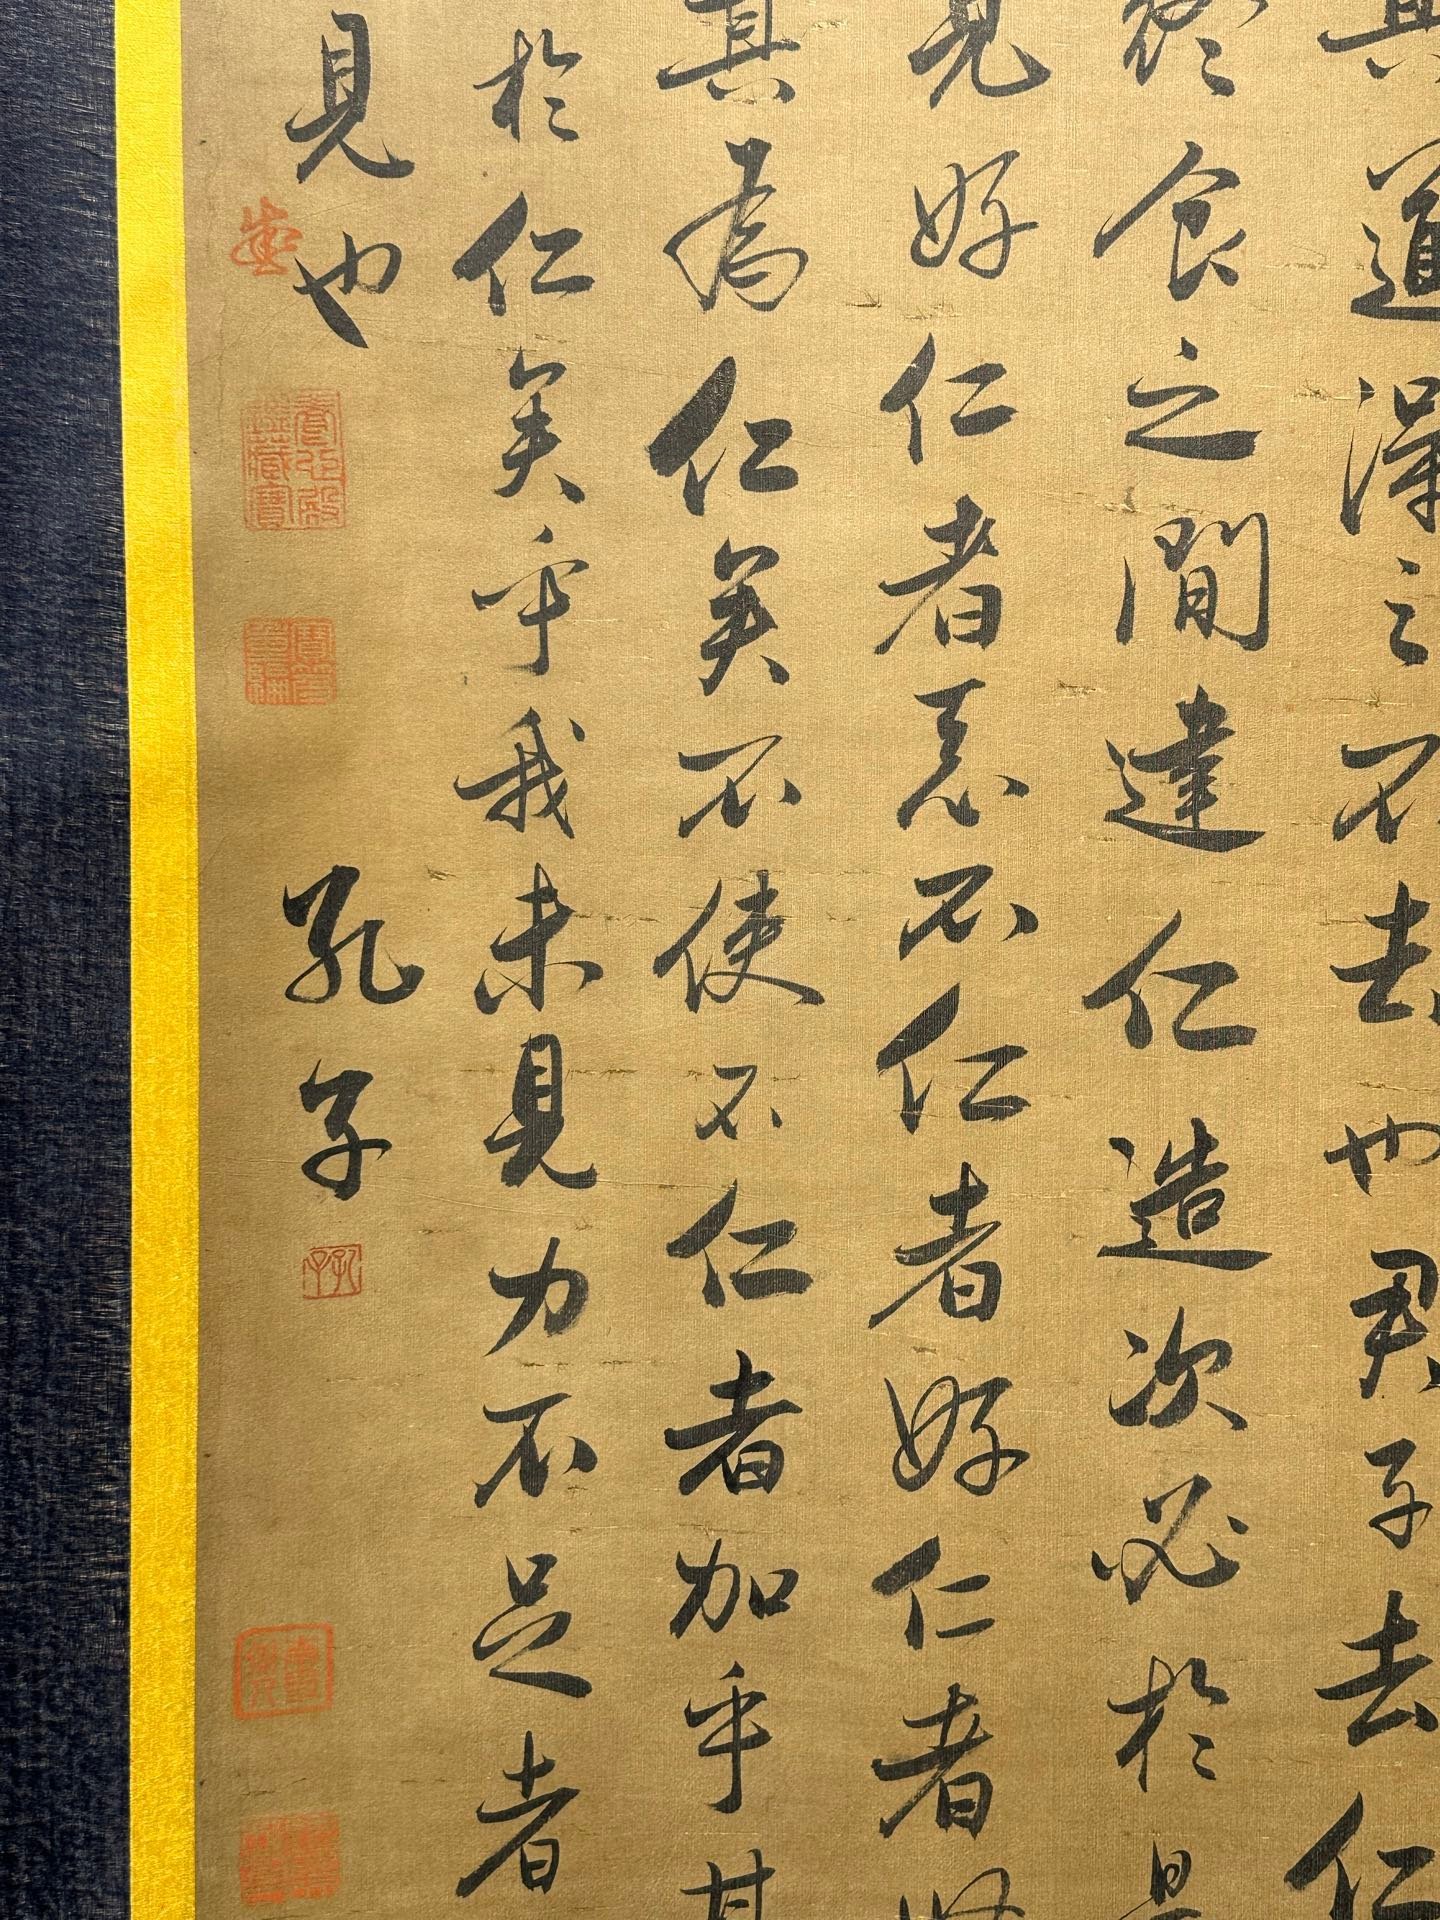 其道得之不去也君子去仁
終食之間違仁造次必於是
見好仁者惡不仁者好仁者
其為仁矣不使不仁者加乎其
於仁矣乎我未見力不足者
見也
孔子
孔子
養心殿鑑藏寶
寶笈重編